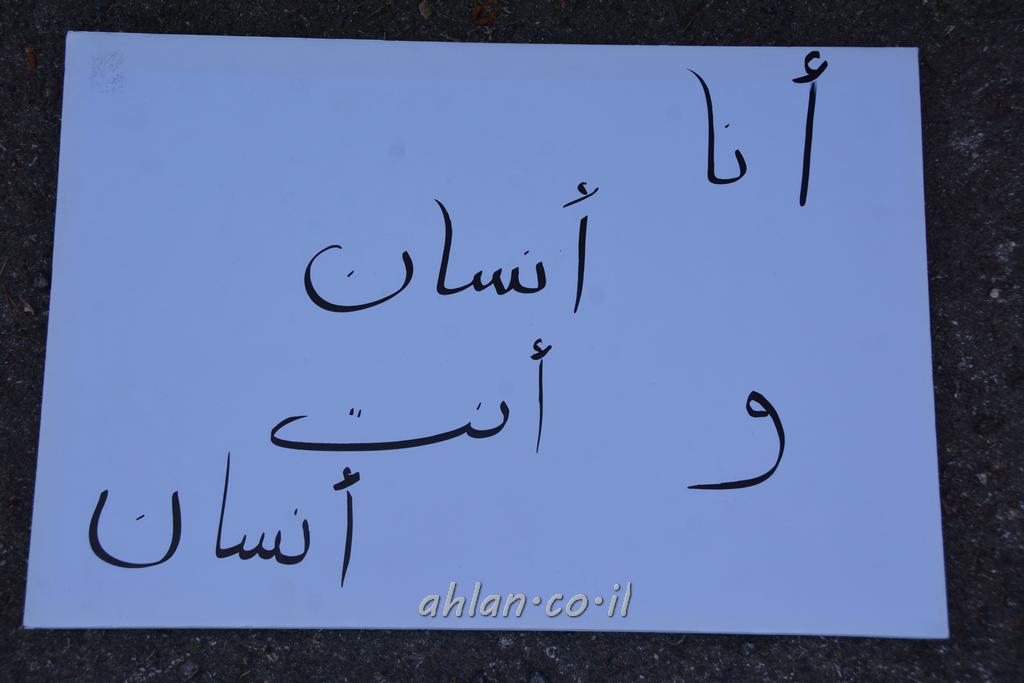 أنا
أنسان
و أنت
أنسان
ahlan.co.il